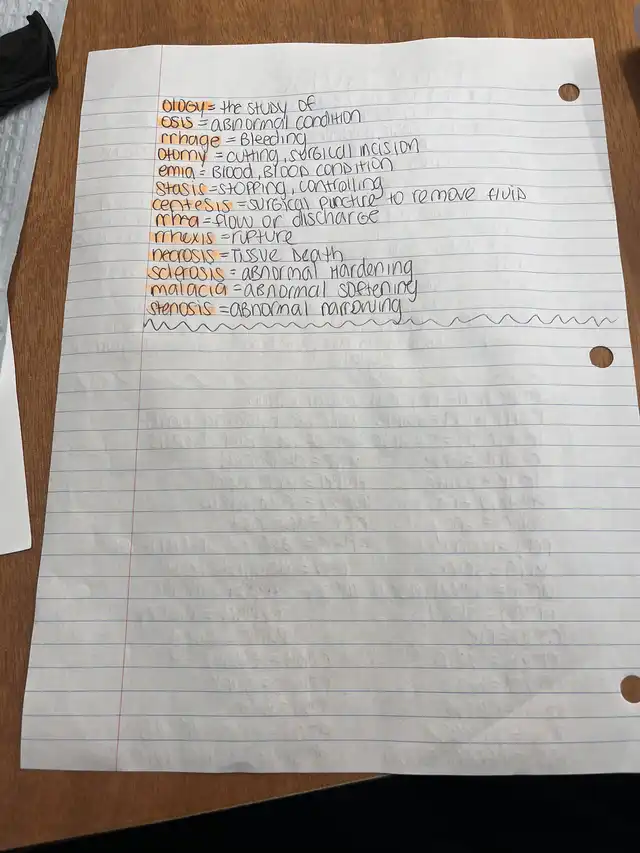 ology = the study of
osis = abnormal condition
rrhage = Bleeding
otomy = cutting, surgical incision
emia = Blood, Blood condition
stasis = stopping, controlling
centesis = surgical puncture to remove fluid
rrhea = flow or discharge
rrhexis = rupture
necrosis = Tissue Death
sclerosis = abnormal Hardening
malacia = abnormal softening
stenosis = abnormal narrowing